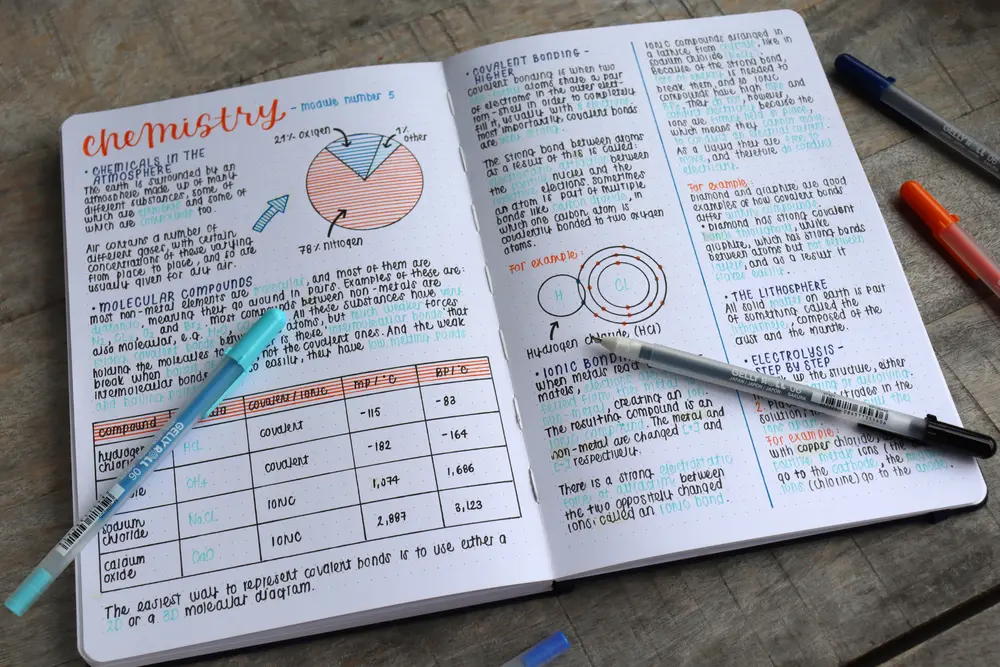 chemistry
- module number 5
• CHEMICALS IN THE
ATMOSPHERE
The earth is surrounded by an
atmosphere made up of many
different substances, some of
which are elements and some of
which are compounds too.
Air contains a number of
different gases, with certain
concentrations of these varying
from place to place, and so are
usually given for dry air.
21% oxigen
1%
other
78% nitrogen
• MOLECULAR COMPOUNDS
most non-metal elements are molecular, and most of them are
diatomic, meaning they go around in pairs. Examples of these are:
and Br2. Most compounds between non-metals are
also molecular, e.g.
All these substances have very
covalent bonds between atoms, but much weaker forces
holding the molecules to
is these intermolecular bonds that
break when
not the covalent ones. And the weak
inermolecular bonds
to easily, they have low melting points
and boiling points
compound
covalent/ionic
MP/°C
BP/°C
HCL
covalent
-115
-83
CH4
covalent
-182
-164
sodium
chloride
NaCL
IONIC
1,074
1,686
calcium
oxide
CaO
IONIC
2,887
3,123
The easiest way to represent covalent bonds is to use either a
2D or a 3D molecular diagram.
• COVALENT BONDING -
HIGHER
covalent bonding is when two
atoms share a pair
of electrons in the outer elect
ron-shell in order to completely
fill it, usually with 8 electrons.
most importantly, covalent bonds
are very strong.
The strong bond between atoms
as a result of this is called:
attraction between
the nuclei and the
electrons. Sometimes
an atom is part of multiple
bonds like carbon dioxide, in
which one carbon atom is
covalently bonded to two oxygen
atoms.
For example:
H
CL
Hydrogen chloride, (HCl)
• IONIC BONDING
when metals rea
matels,
from the metal
non-metal, creating an ion.
ionic compound. The metal and
The resulting compound is an
non-metal are changed [+] and
[-] respectively.
There is a strong electrostatic
force of attraction between
the two oppositely changed
ions called an ionic bond.
Ionic compounds arranged in
a lattice from, like in
sodium chloride
Because of the strong bond,
lots of energy is needed to
break them, and so ionic
compounds have high MPs and
BPs. They do not, however,
conduct electricity because the
ions are firmly held in place,
which means they cannot move
to conduct an electrical current.
As a liquid they are free to
move, and therefore do conduct
electricity.
For example:
Diamond and graphite are good
examples of how covalent bonds
differ
• Diamond has strong covalent
bonds throughout, unlike
graphite, which has strong bonds
between atoms but not between
layers, and as a result it
flakes easily.
• THE LITHOSPHERE
All solid matter on earth is part
of something called the
lithosphere, composed of the
crust and the mantle.
• ELECTROLYSIS -
STEP BY STEP
up the structure, either
melting or dissolving.
2. Pla
electrodes in the
solution
For example:
with copper chloride, the
positive metal ions (the
go to the cathode, the
ions (chlorine) go to the anode.
GELLY ROLL 06
GELLY ROLL
JAPAN/JAPON/JAPAN SAKURA